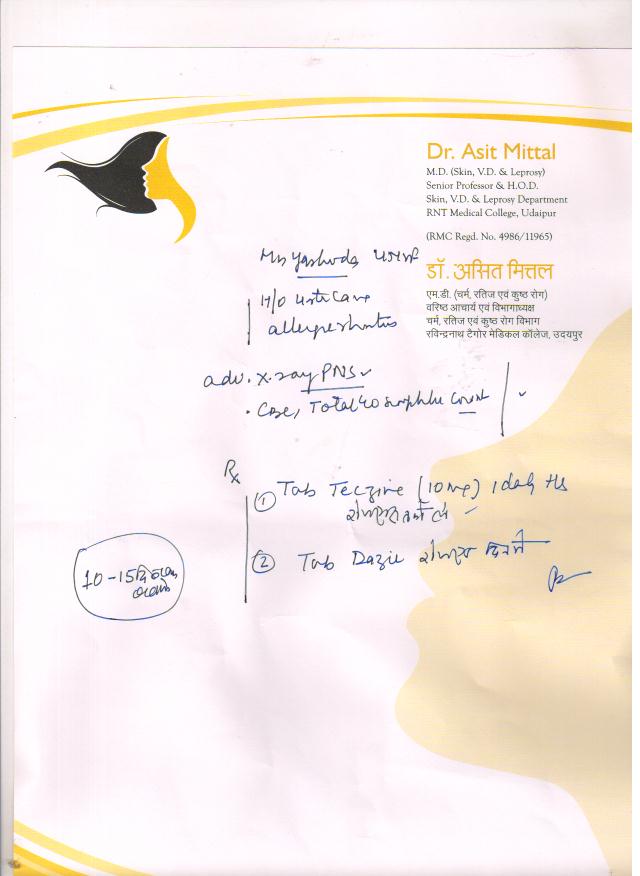 Dr. Asit Mittal
M.D. (Skin, V.D. & Leprosy)
Senior Professor & H.O.D.
Skin, V.D. & Leprosy Department
RNT Medical College, Udaipur
(RMC Regd. No. 4986/11965)
डॉ. असित मित्तल
एम.डी. (चर्म, रतिज एवं कुष्ठ रोग)
वरिष्ठ आचार्य एवं विभागाध्यक्ष
चर्म, रतिज एवं कुष्ठ रोग विभाग
रविन्द्रनाथ टैगोर मेडिकल कॉलेज, उदयपुर
Yashoda
H/O
adv. X-ray PNS
Total count
Rx
① Tab Teczine (10mg) 1 daily Hs
② Tab Dazit
10-15